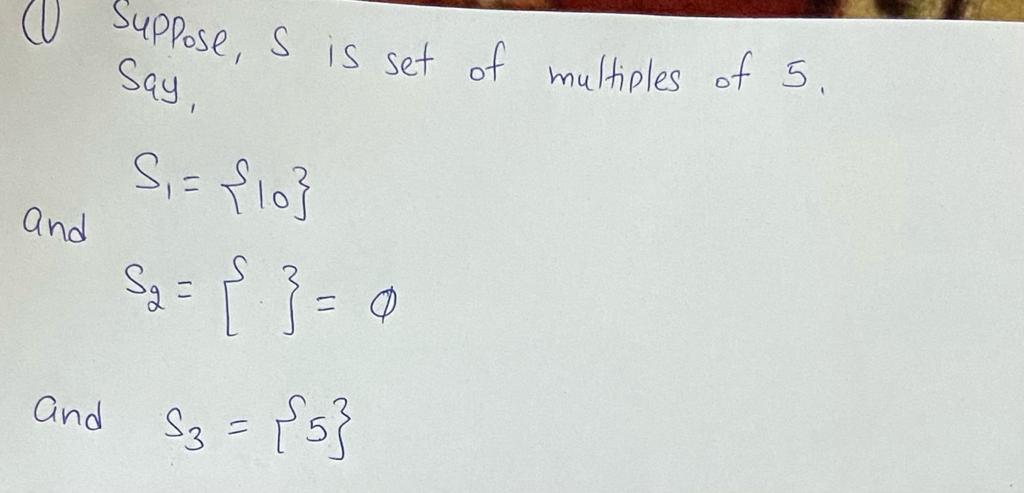 ① Suppose, S is set of multiples of 5.
Say,
S₁ = {10}
and
S₂ = { } = ∅
and S₃ = {5}